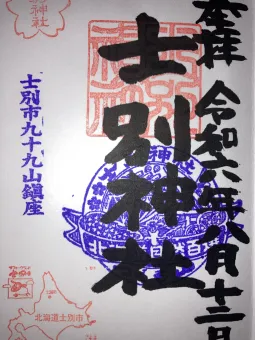 奉拝 令和六年八月十二日
士別神社
士別市九十九山鎮座
北海道士別市